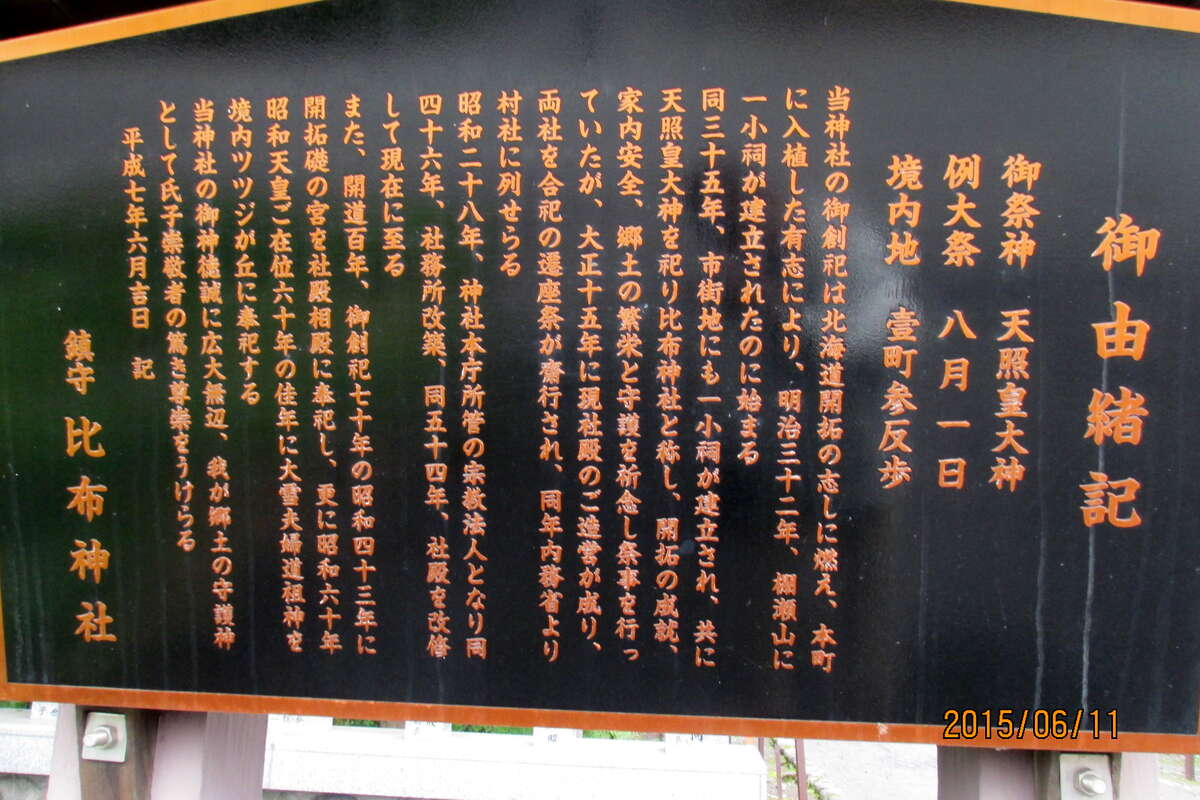 御由緒記
御祭神 天照皇大神
例大祭 八月一日
境内地 壹町参反歩
当神社の御創祀は北海道開拓の志しに燃え、本町
に入植した有志により、明治三十二年、棚瀬山に
一小祠が建立されたのに始まる
同三十五年、市街地にも一小祠が建立され、共に
天照皇大神を祀り比布神社と称し、開拓の成就、
家内安全、郷土の繁栄と守護を祈念し祭事を行っ
ていたが、大正十五年に現社殿のご造営が成り、
両社を合祀の遷座祭が齋行され、同年内務省より
村社に列せらる
昭和二十八年、神社本庁所管の宗教法人となり同
四十六年、社務所改築、同五十四年、社殿を改修
して現在に至る
また、開道百年、御創祀七十年の昭和四十三年に
開拓礎の宮を社殿相殿に奉祀し、更に昭和六十年
昭和天皇ご在位六十年の佳年に大雪夫婦道祖神を
境内ツツジが丘に奉祀する
当神社の御神徳誠に広大無辺、我が郷土の守護神
として氏子崇敬者の篤き尊崇をうけらる
平成七年六月吉日 記
鎮守 比布神社
2015/06/11